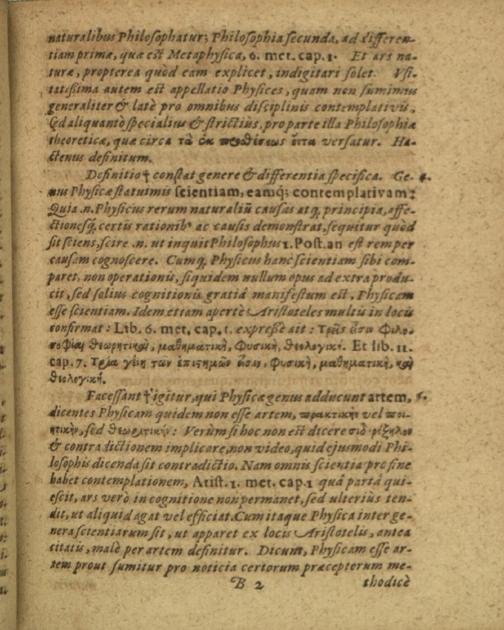 naturalibus Philosophatur; Philosophia secunda, ad differen-
tiam primæ, quæ est Metaphysica, 6. met. cap. 1. Et ars na-
turæ, propterea quòd eam explicet, indigitari solet. Usi-
tatissima autem est appellatio Physices, quam non sumimus
generaliter & latè pro omnibus disciplinis contemplativis,
sed aliquantò specialius & strictius, pro parte illa Philosophiæ
theoreticæ, quæ circa τὰ ἐκ versatur. Ha-
ctenus definitum.
Definitio constat genere & differentia specifica. Ge- 4.
nus Physicæ statuimus scientiam, eamq; contemplativam:
Quia .n. Physicus rerum naturaliũ causas atq; principia, affe-
ctionesq; certis rationibꝰ ac causis demonstrat, sequitur quòd
sit sciens, scire .n. ut inquit Philosophus 1. Post. an est rem per
causam cognoscere. Cumq; Physicus hanc scientiam sibi com-
paret, non operationis, siquidem nullum opus ad extra produ-
cit, sed solius cognitionis gratiâ manifestum est, Physicam
esse scientiam. Idem etiam apertè Aristoteles multis in locis
confirmat: Lib. 6. met. cap. 1. expreßè ait: Τρεῖς ὧσι Φιλο-
σοφίαι θεωρητικαὶ, μαθηματικὴ, Φυσικὴ, θεολογική. Et lib. 11.
cap. 7. Τρία γένη τῶν ἐπιστημῶν ὧσι, Φυσικὴ, μαθηματικὴ, καὶ
θεολογική.
Facessant igitur, qui Physicæ genus adducunt artem, 5.
dicentes Physicam quidem non esse artem, πρακτικὴν vel ποιη-
τικὴν, sed θεωρητικὴν: Verùm si hoc non est dicere
& contradictionem implicare, non video, quid ejusmodi Phi-
losophis dicenda sit contradictio. Nam omnis scientia pro fine
habet contemplationem, Arist. 1. met. cap. 1 quâ partâ qui-
escit, ars verò in cognitione non permanet, sed ulterius ten-
dit, ut aliquid agat vel efficiat. Cum itaque Physica inter ge-
nera scientiarum sit, ut apparet ex locis Aristotelis, antea
citatis, malè per artem definitur. Dicunt, Physicam esse ar-
tem prout sumitur pro noticia certorum præceptorum me-
B 2 thodicè